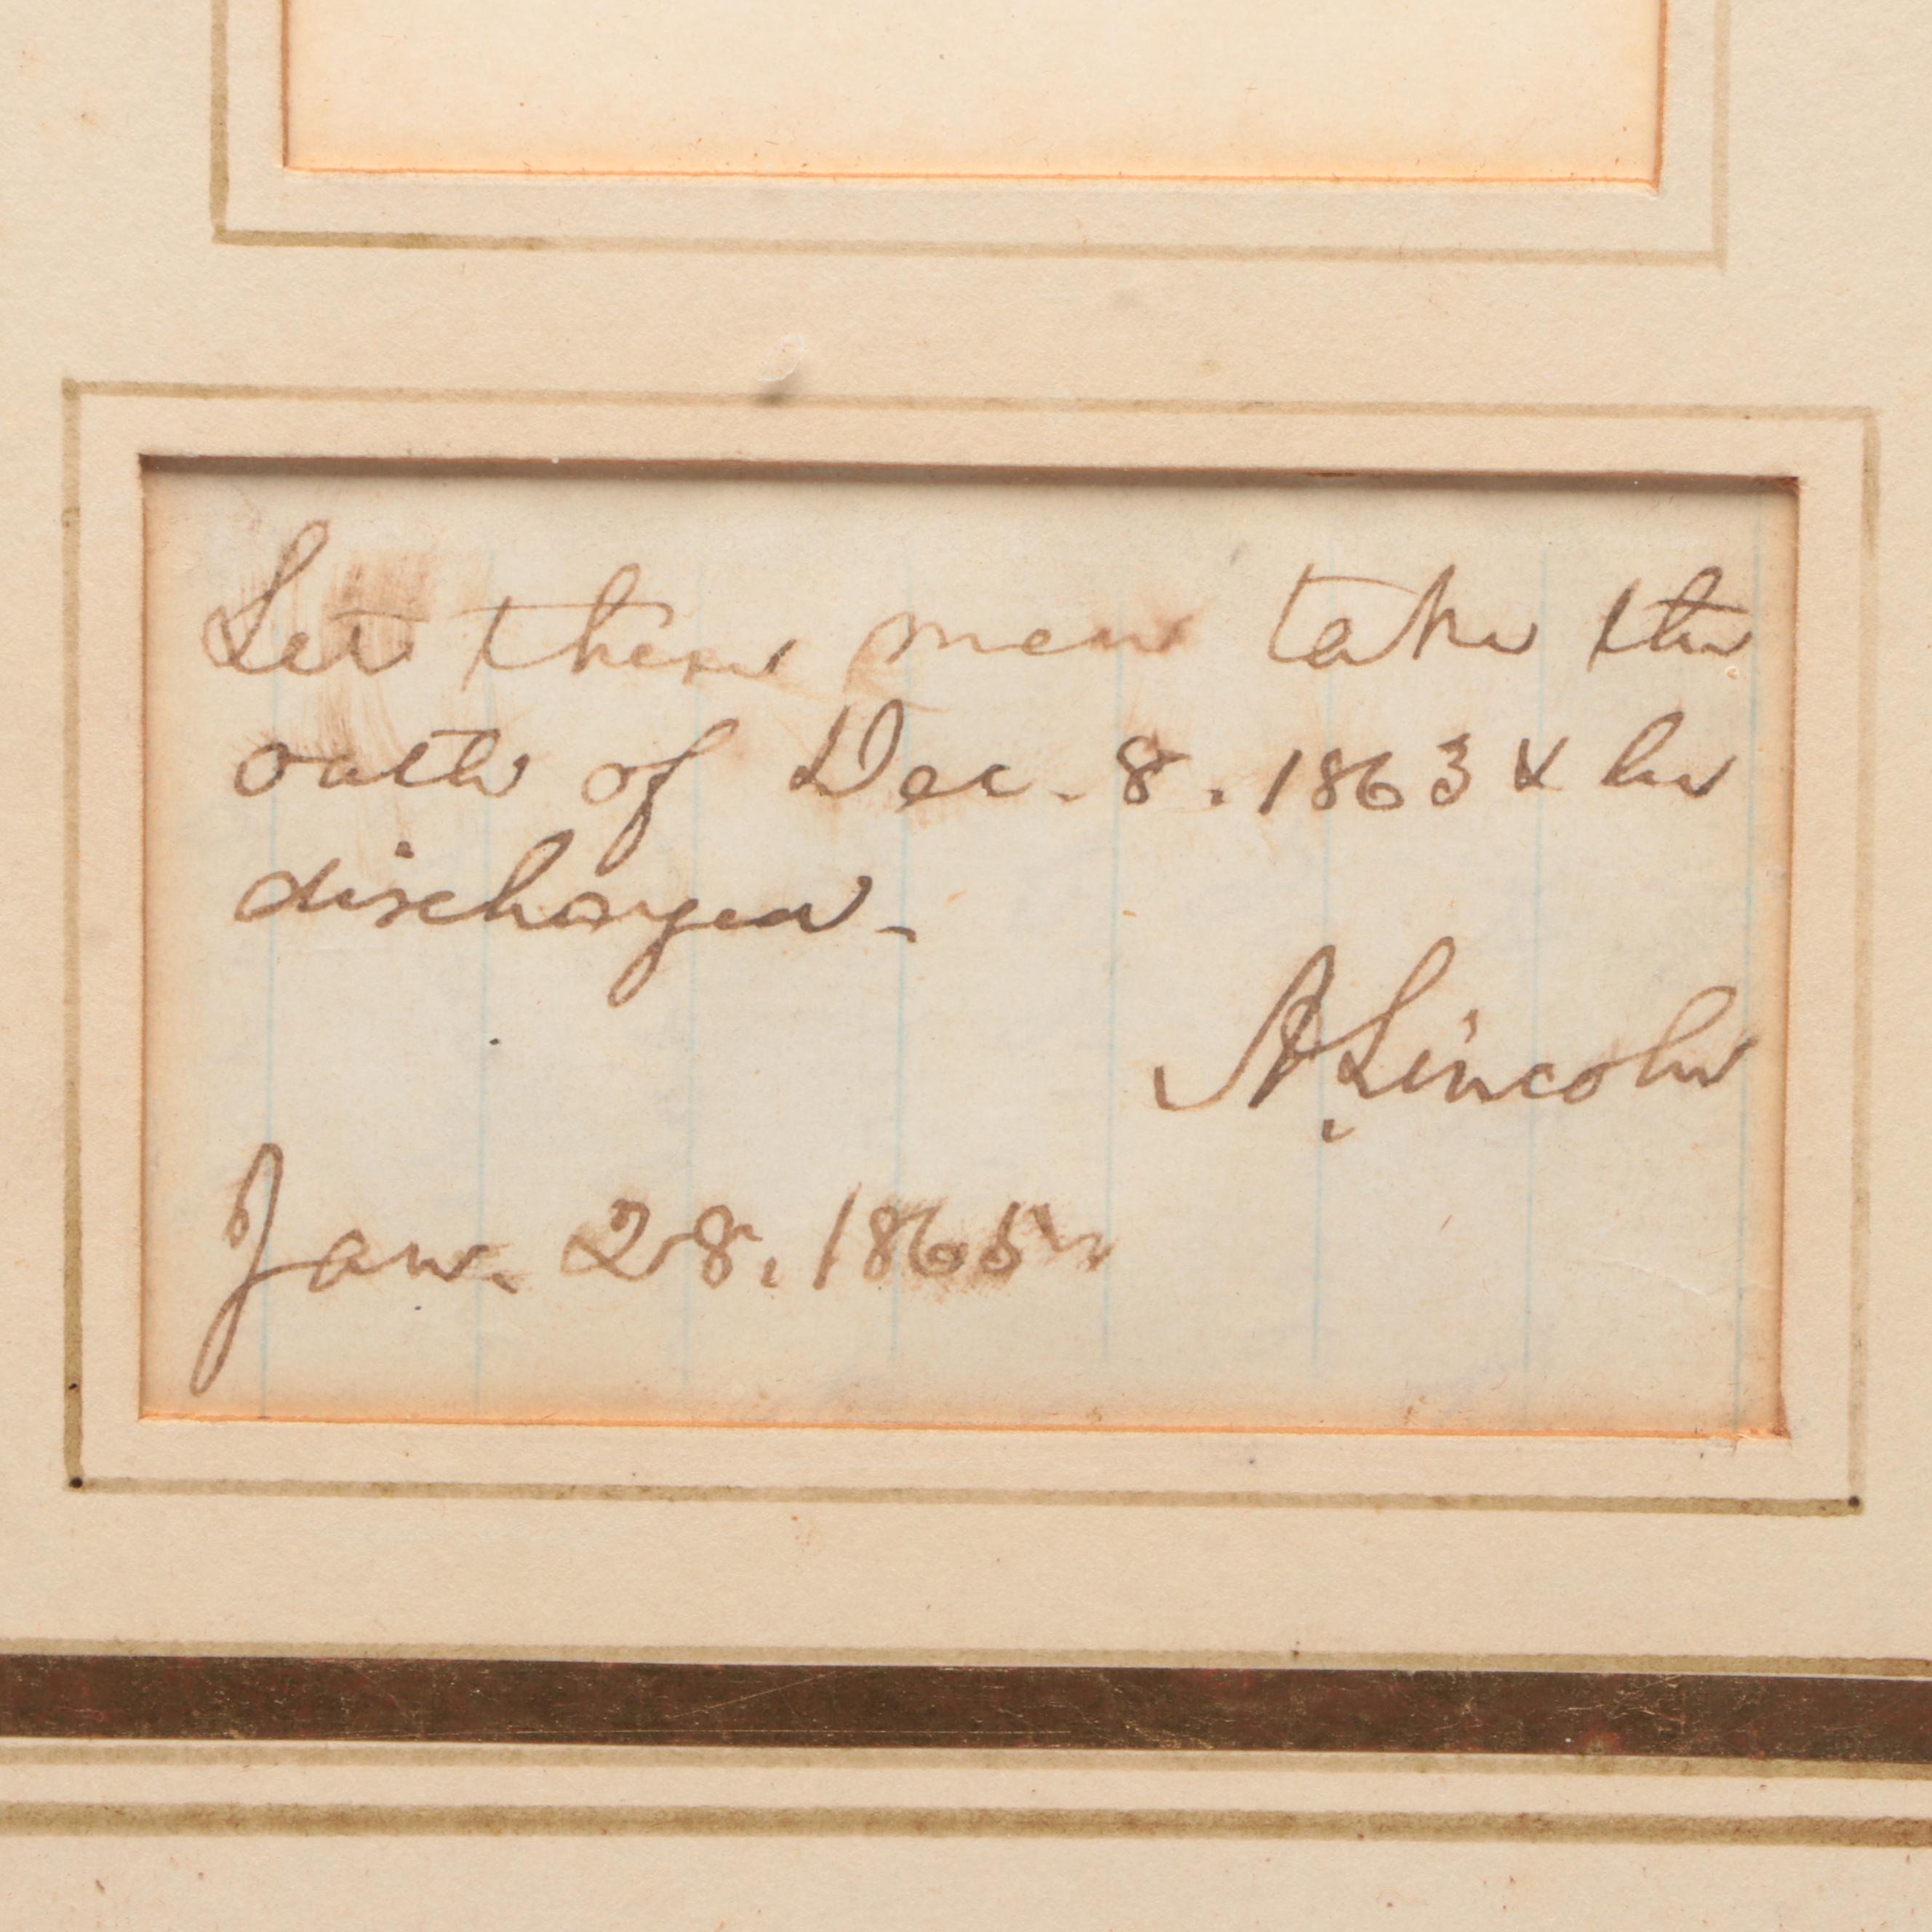 Let these men take the
oath of Dec. 8. 1863 & be
discharged.
A. Lincoln
Jan. 28. 1865